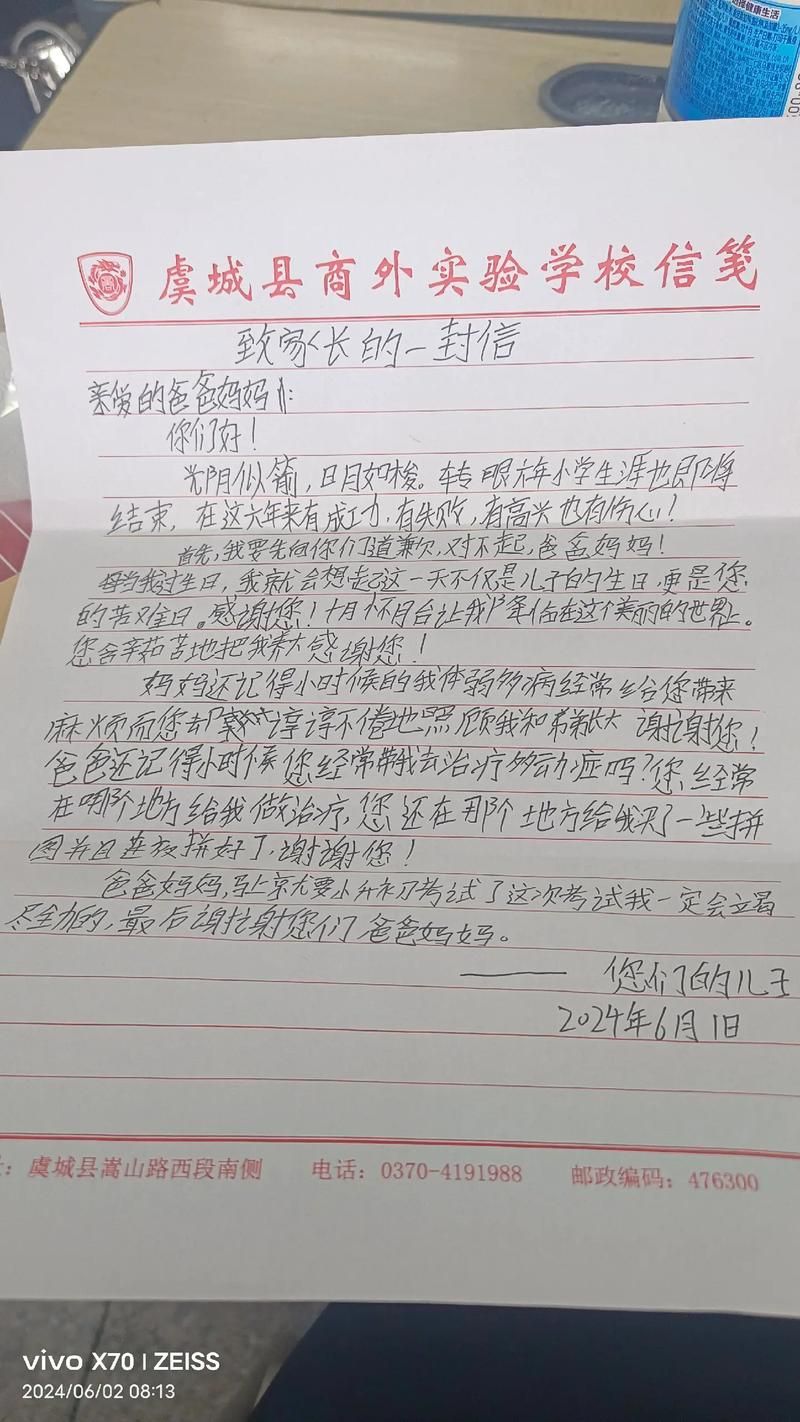 虞城县商外实验学校信笺
致家长的一封信
亲爱的爸爸妈妈们:
你们好!
光阴似箭,日月如梭。转眼六年小学生涯也即将
结束,在这六年来有成功,有失败,有高兴也有伤心!
首先,我要先向你们道歉,对不起,爸爸妈妈!
每当我过生日,我就会想起这一天不仅是儿子的生日,更是您
的苦难日。感谢您!十月怀胎让我降临在这个美丽的世界上。
您含辛茹苦地把我养大感谢您!
妈妈还记得小时候的我体弱多病经常给您带来
麻烦而您去谆谆不倦地照顾我和弟弟长大谢谢您!
爸爸还记得小时候您经常带我去治疗多动症吗?您经常
在哪个地方给我做治疗,您还在那个地方给我买了一些拼
图并且拼好了,谢谢您!
爸爸妈妈,马上就要小升初考试了这次考试我一定会竭
尽全力的,最后谢谢您们爸爸妈妈。
——您们的儿子
2024年6月1日
虞城县嵩山路西段南侧 电话:0370-4191988 邮政编码:476300
vivo X70 | ZEISS
2024/06/02 08:13